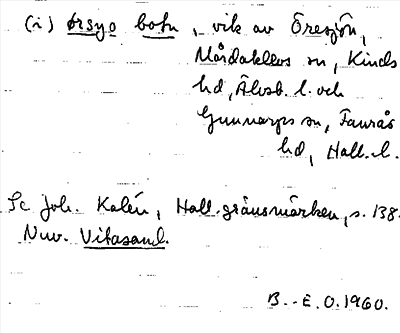 (i) örsyo botn, vik av Öresjön,
Mårdaklevs sn, Kinds
hd, Älvsb. l. och
Gunnarps sn, Faurås
hd, Hall. l.
Se Joh. Kalén, Hall. gränsmärken, s. 138.
Nuv. Vitasand.
B.-E. O. 1960.